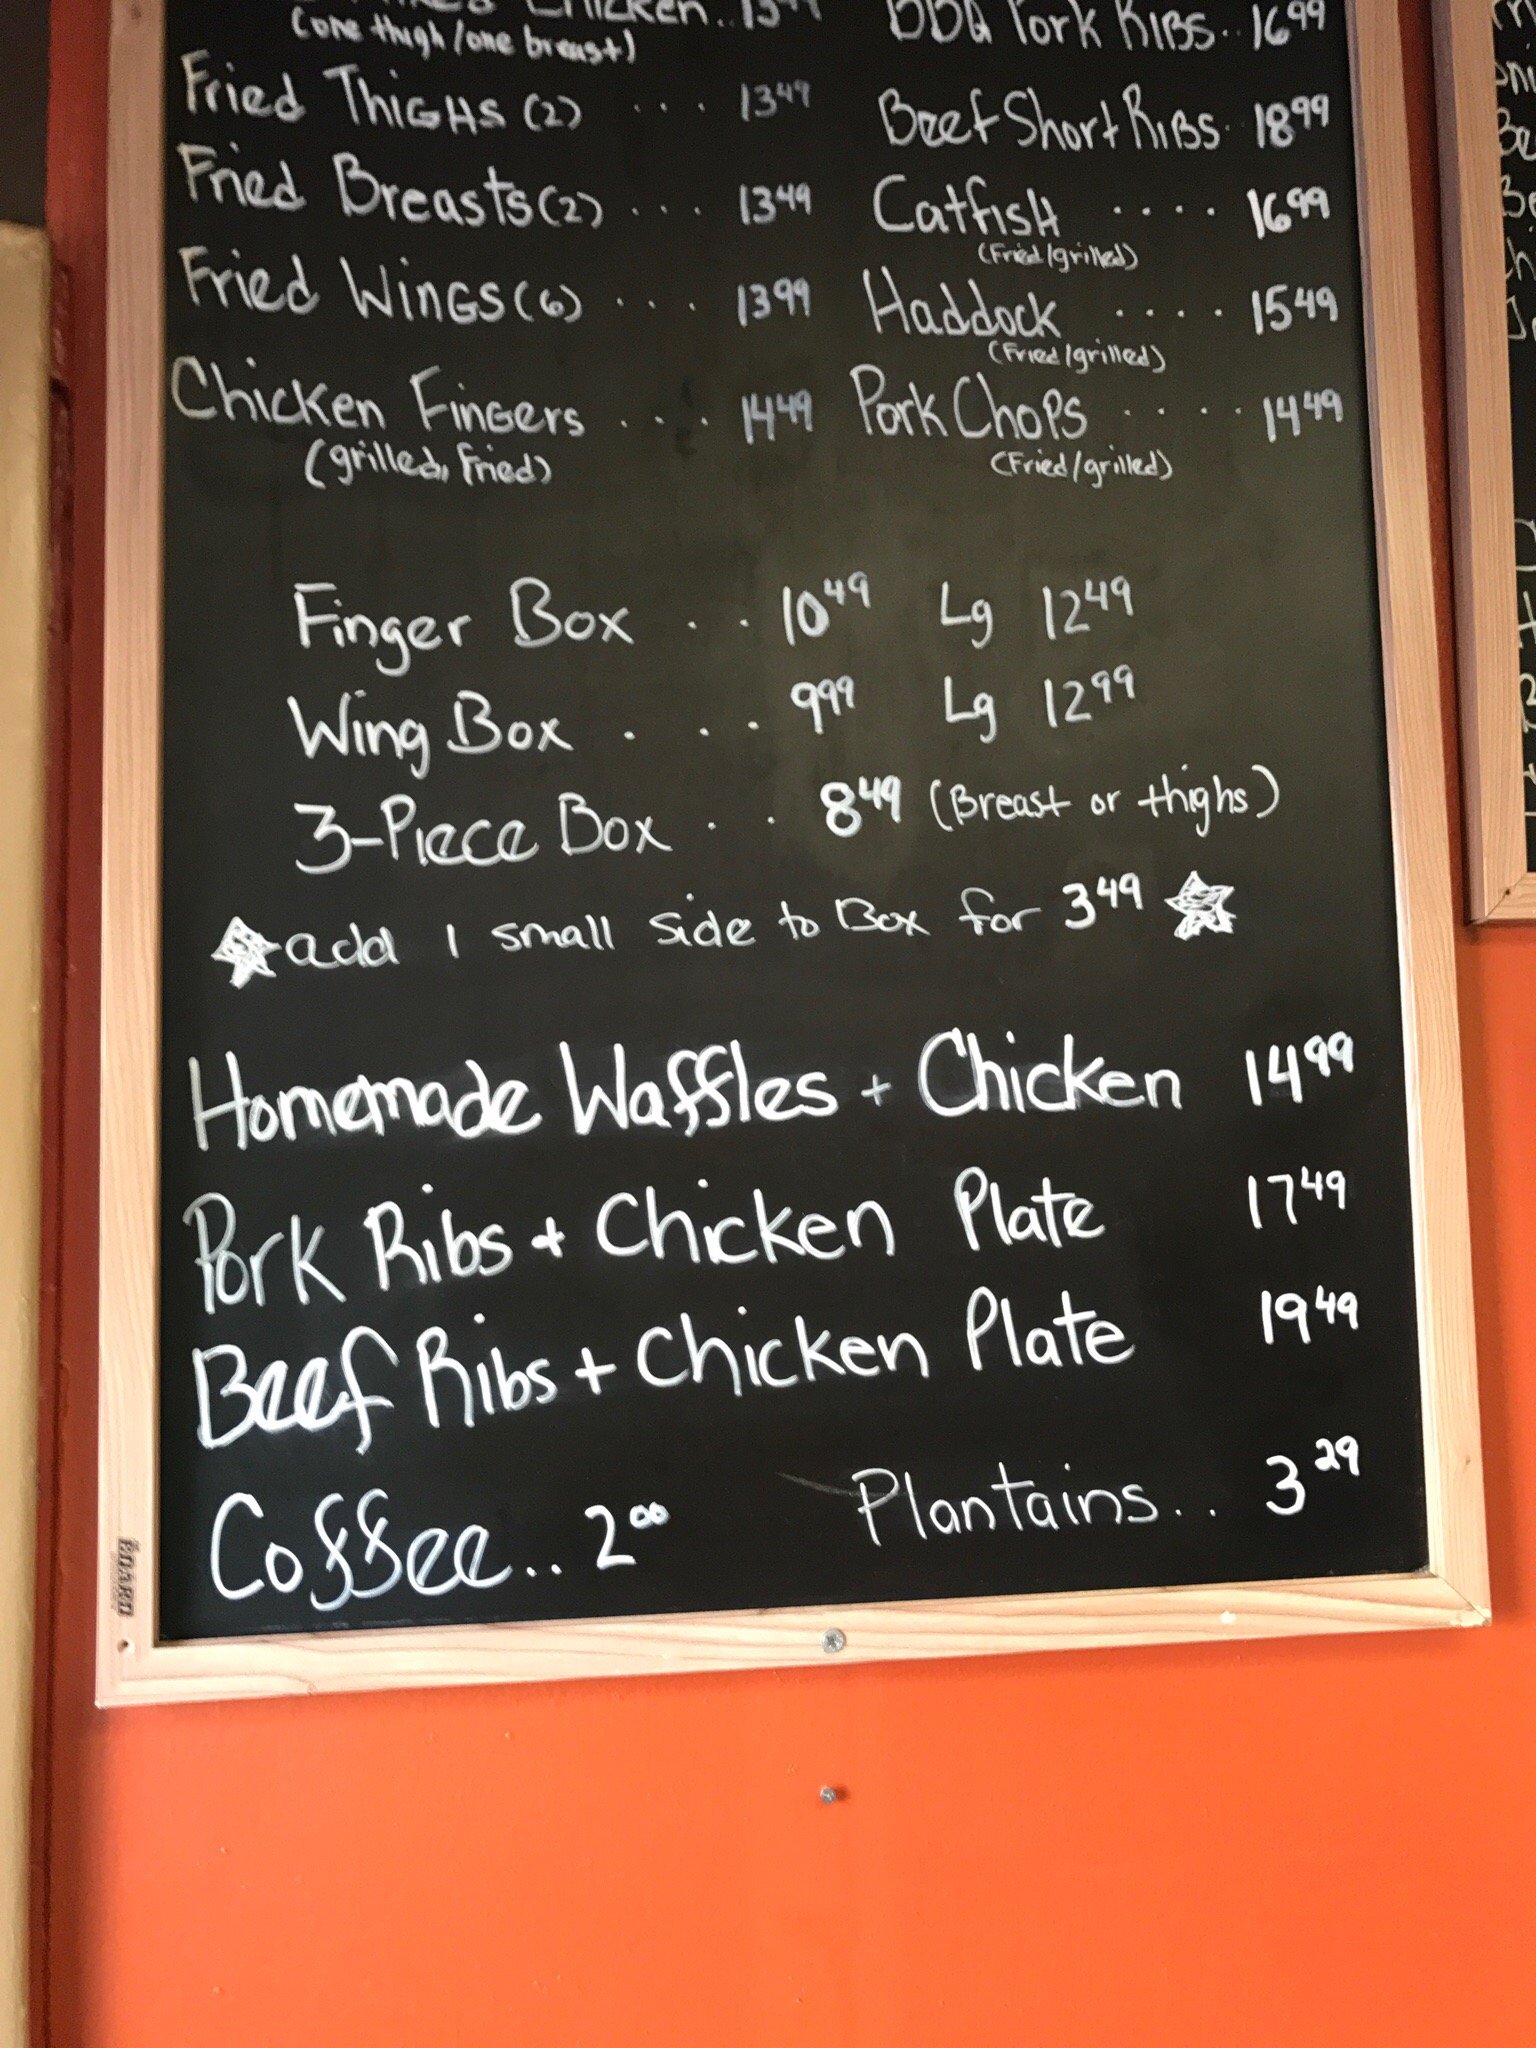 Chicken..
(one thigh/one breast)
BBQ Pork RIBS.. 16 99
Fried THIGHS (2) ... 13 49
Beef Short RIBS. 18 99
Fried Breasts (2) ... 13 49
Catfish .... 16 99
(Fried/grilled)
Fried WINGS (6) ... 13 99
Haddock .... 15 49
(Fried/grilled)
Chicken Fingers ... 14 49
(grilled, Fried)
Pork Chops .... 14 49
(Fried/grilled)
Finger Box .. 10 49 Lg 12 49
Wing Box ... 9 99 Lg 12 99
3-Piece Box .. 8 49 (Breast or thighs)
add 1 small side to Box for 3 49
Homemade Waffles + Chicken 14 99
Pork Ribs + Chicken Plate 17 49
Beef Ribs + Chicken Plate 19 49
Coffee.. 2 00
Plantains... 3 29